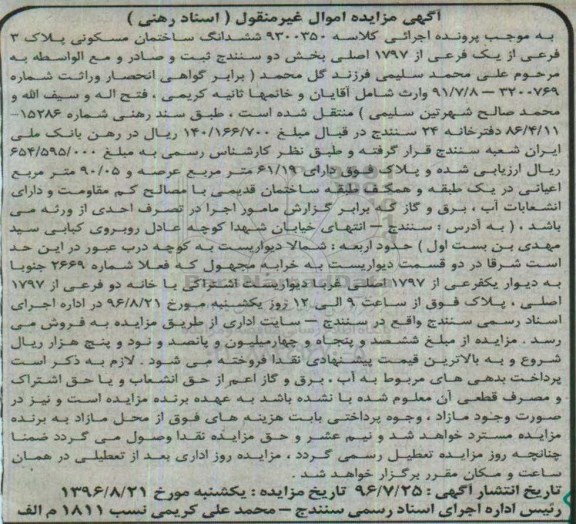 آگهی مزایده اموال غیرمنقول ( اسناد رهنی )
به موجب پرونده اجرائی کلاسه ۹۳۰۰۳۵۰ ششدانگ ساختمان مسکونی پلاک ۳
فرعی از یک فرعی از ۱۷۹۷ اصلی بخش دو سنندج ثبت و صادر و مع الواسطه به
مرحوم علی محمد سلیمی فرزند گل محمد ( برابر گواهی انحصار وراثت شماره
۳۲۰۰۷۶۹ – ۹۱/۷/۸ وارث شامل آقایان و خانمها ثانیه کریمی ، فتح اله و سیف الله و
محمد صالح شهرتین سلیمی ) منتقل شده است ، طبق سند رهنی شماره ۱۵۲۸۶-
۸۶/۴/۱۱ دفترخانه ۲۴ سنندج در قبال مبلغ ۱۴۰/۱۶۶/۷۰۰ ریال در رهن بانک ملی
ایران شعبه سنندج قرار گرفته و طبق نظر کارشناس رسمی به مبلغ ۶۵۴/۵۹۵/۰۰۰
ریال ارزیابی شده و پلاک فوق دارای ۶۱/۱۹ متر مربع عرصه و ۹۰/۰۵ متر مربع
اعیانی در یک طبقه و همکف طبقه ساختمان قدیمی با مصالح کم مقاومت و دارای
انشعابات آب ، برق و گاز که برابر گزارش مامور اجرا در تصرف احدی از ورثه می
باشد . ( به آدرس : سنندج – انتهای خیابان شهدا کوچه عادل روبروی کبابی سید
مهدی بن بست اول ) حدود اربعه : شمالا دیواریست به کوچه درب عبور در این حد
است شرقا در دو قسمت دیواریست به خرابه مجهول که فعلا شماره ۲۶۶۹ جنوبا
به دیوار یکفرعی از ۱۷۹۷ اصلی غربا دیواریست اشتراکی با خانه دو فرعی از ۱۷۹۷
اصلی . پلاک فوق از ساعت ۹ الی ۱۲ روز یکشنبه مورخ ۹۶/۸/۲۱ در اداره اجرای
اسناد رسمی سنندج واقع در سنندج – سایت اداری از طریق مزایده به فروش می
رسد . مزایده از مبلغ ششصد و پنجاه و چهارمیلیون و پانصد و نود و پنج هزار ریال
شروع و به بالاترین قیمت پیشنهادی نقدا فروخته می شود . لازم به ذکر است
پرداخت بدهی های مربوط به آب ، برق و گاز اعم از حق انشعاب و یا حق اشتراک
و مصرف قطعی آن معلوم شده یا نشده باشد به عهده برنده مزایده است و نیز در
صورت وجود مازاد ، وجوه پرداختی بابت هزینه های فوق از محل مازاد به برنده
مزایده مسترد خواهد شد و نیم عشر و حق مزایده نقدا وصول می گردد ضمنا
چنانچه روز مزایده تعطیل رسمی گردد ، مزایده روز اداری بعد از تعطیلی در همان
ساعت و مکان مقرر برگزار خواهد شد .
تاریخ انتشار آگهی : ۹۶/۷/۲۵ تاریخ مزایده : یکشنبه مورخ ۱۳۹۶/۸/۲۱
رئیس اداره اجرای اسناد رسمی سنندج – محمد علی کریمی نسب ۱۸۱۱ م الف